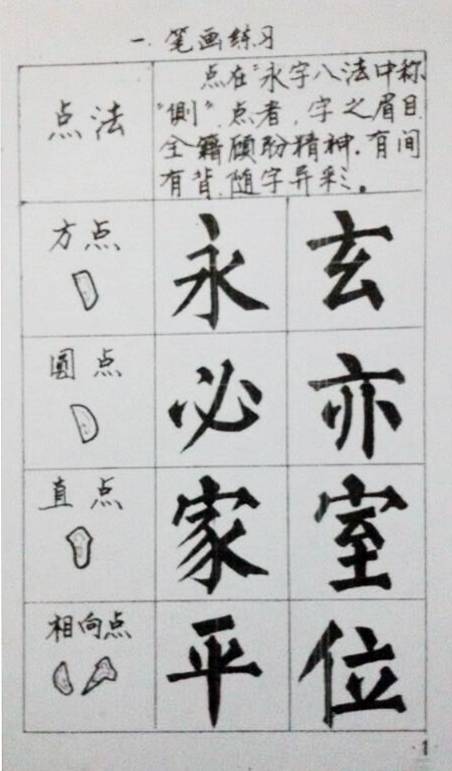 一.笔画练习
点法
点在"永字八法中称
"侧".点者,字之眉目
全籍顾盼精神.有间
有背.随字异彩。
方点 永 玄
圆点 必 亦
直点 家 室
相向点 平 位
1